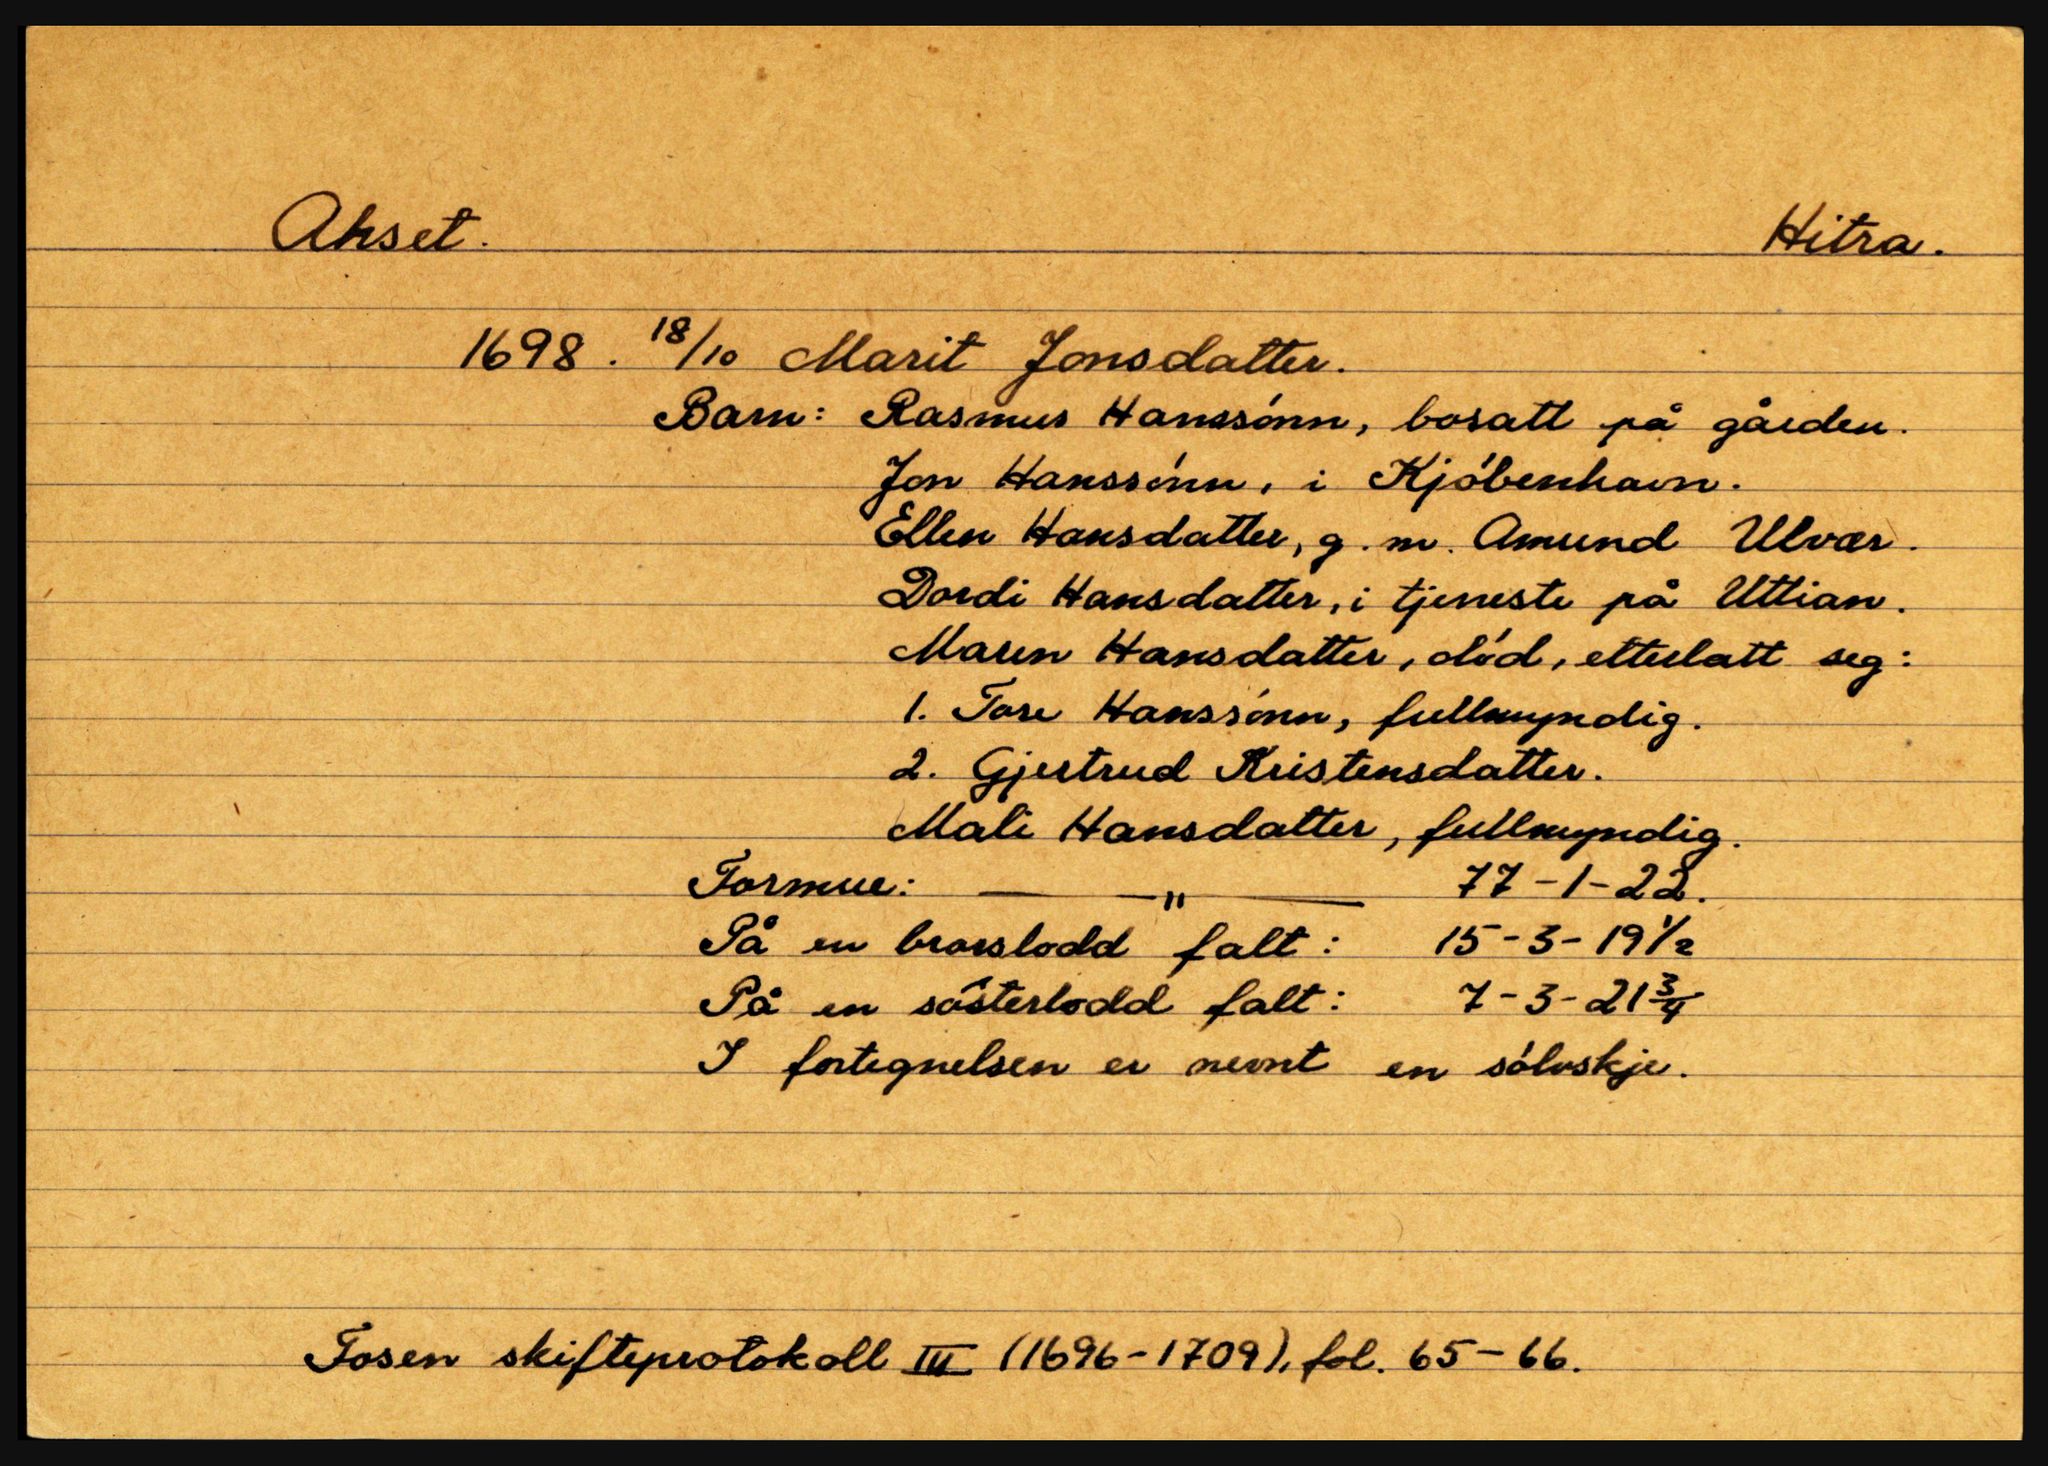 Akset. Hitra.
1698. 18/10 Marit Jonsdatter.
Barn: Rasmus Hanssónn, bosatt på gården.
Jon Hanssónn, i Kjóbenhavn.
Ellen Hansdatter, g. m. Amund Ulvær.
Dordi Hansdatter, i tjeneste på Uttian.
Maren Hansdatter, död, etterlatt seg:
1. Tore Hanssónn, fullmyndig.
2. Gjertrud Kristensdatter.
Mali Hansdatter, fullmyndig.
Formue: — — " — 77-1-22.
På en brorslodd falt: 15-3-19 1/2
På en sösterlodd falt: 7-3-21 3/4
I fortegnelsen er nevnt en sólvskje.
Fosen skifteprotokoll III (1696-1709), fol. 65-66.